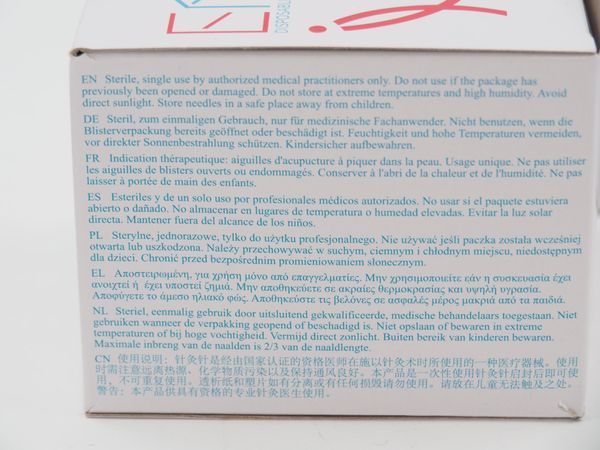 DISPOSABLE
EN Sterile, single use by authorized medical practitioners only. Do not use if the package has
previously been opened or damaged. Do not store at extreme temperatures and high humidity. Avoid
direct sunlight. Store needles in a safe place away from children.
DE Steril, zum einmaligen Gebrauch, nur für medizinische Fachanwender. Nicht benutzen, wenn die
Blisterverpackung bereits geöffnet oder beschädigt ist. Feuchtigkeit und hohe Temperaturen vermeiden,
vor direkter Sonnenbestrahlung schützen. Kindersicher aufbewahren.
FR Indication thérapeutique: aiguilles d'acupucture à piquer dans la peau. Usage unique. Ne pas utiliser
les aiguilles de blisters ouverts ou endommagés. Conserver à l'abri de la chaleur et de l'humidité. Ne pas
laisser à portée de main des enfants.
ES Esteriles y de un solo uso por profesionales médicos autorizados. No usar si el paquete estuviera
abierto o dañado. No almacenar en lugares de temperatura o humedad elevadas. Evitar la luz solar
directa. Mantener fuera del alcance de los niños.
PL Sterylne, jednorazowe, tylko do użytku profesjonalnego. Nie używać jeśli paczka została wcześniej
otwarta lub uszkodzona. Należy przechowywać w suchym, ciemnym i chłodnym miejscu, niedostępnym
dla dzieci. Chronić przed bezpośrednim promieniowaniem słonecznym.
EL Αποστειρωμένη, για χρήση μόνο από επαγγελματίες. Μην χρησιμοποιείτε εάν η συσκευασία έχει
ανοιχτεί ή έχει υποστεί ζημιά. Μην αποθηκεύετε σε ακραίες θερμοκρασίες και υψηλή υγρασία.
Αποφύγετε το άμεσο ηλιακό φώς. Αποθηκεύστε τις βελόνες σε ασφαλές μέρος μακριά από τα παιδιά.
NL Steriel, eenmalig gebruik door uitsluitend gekwalificeerde, medische behandelaars toegestaan. Niet
gebruiken wanneer de verpakking geopend of beschadigd is. Niet opslaan of bewaren in extreme
temperaturen of bij hoge vochtigheid. Vermijd direct zonlicht. Buiten bereik van kinderen bewaren.
Maximale inbreng van de naalden is 2/3 van de naaldlengte.
CN 使用说明：针灸针是经由国家认证的资格医师在施以针灸术时所使用的一种医疗器械。使用
时需注意远离热源、化学物质污染以及保持通风良好。本产品是一次性使用针灸针启封后即可使
用，不可重复使用。透析纸和塑片如有分离或有任何损毁请勿使用。请放在儿童无法触及之处。
警告：本产品供具有资格的专业针灸医生使用。